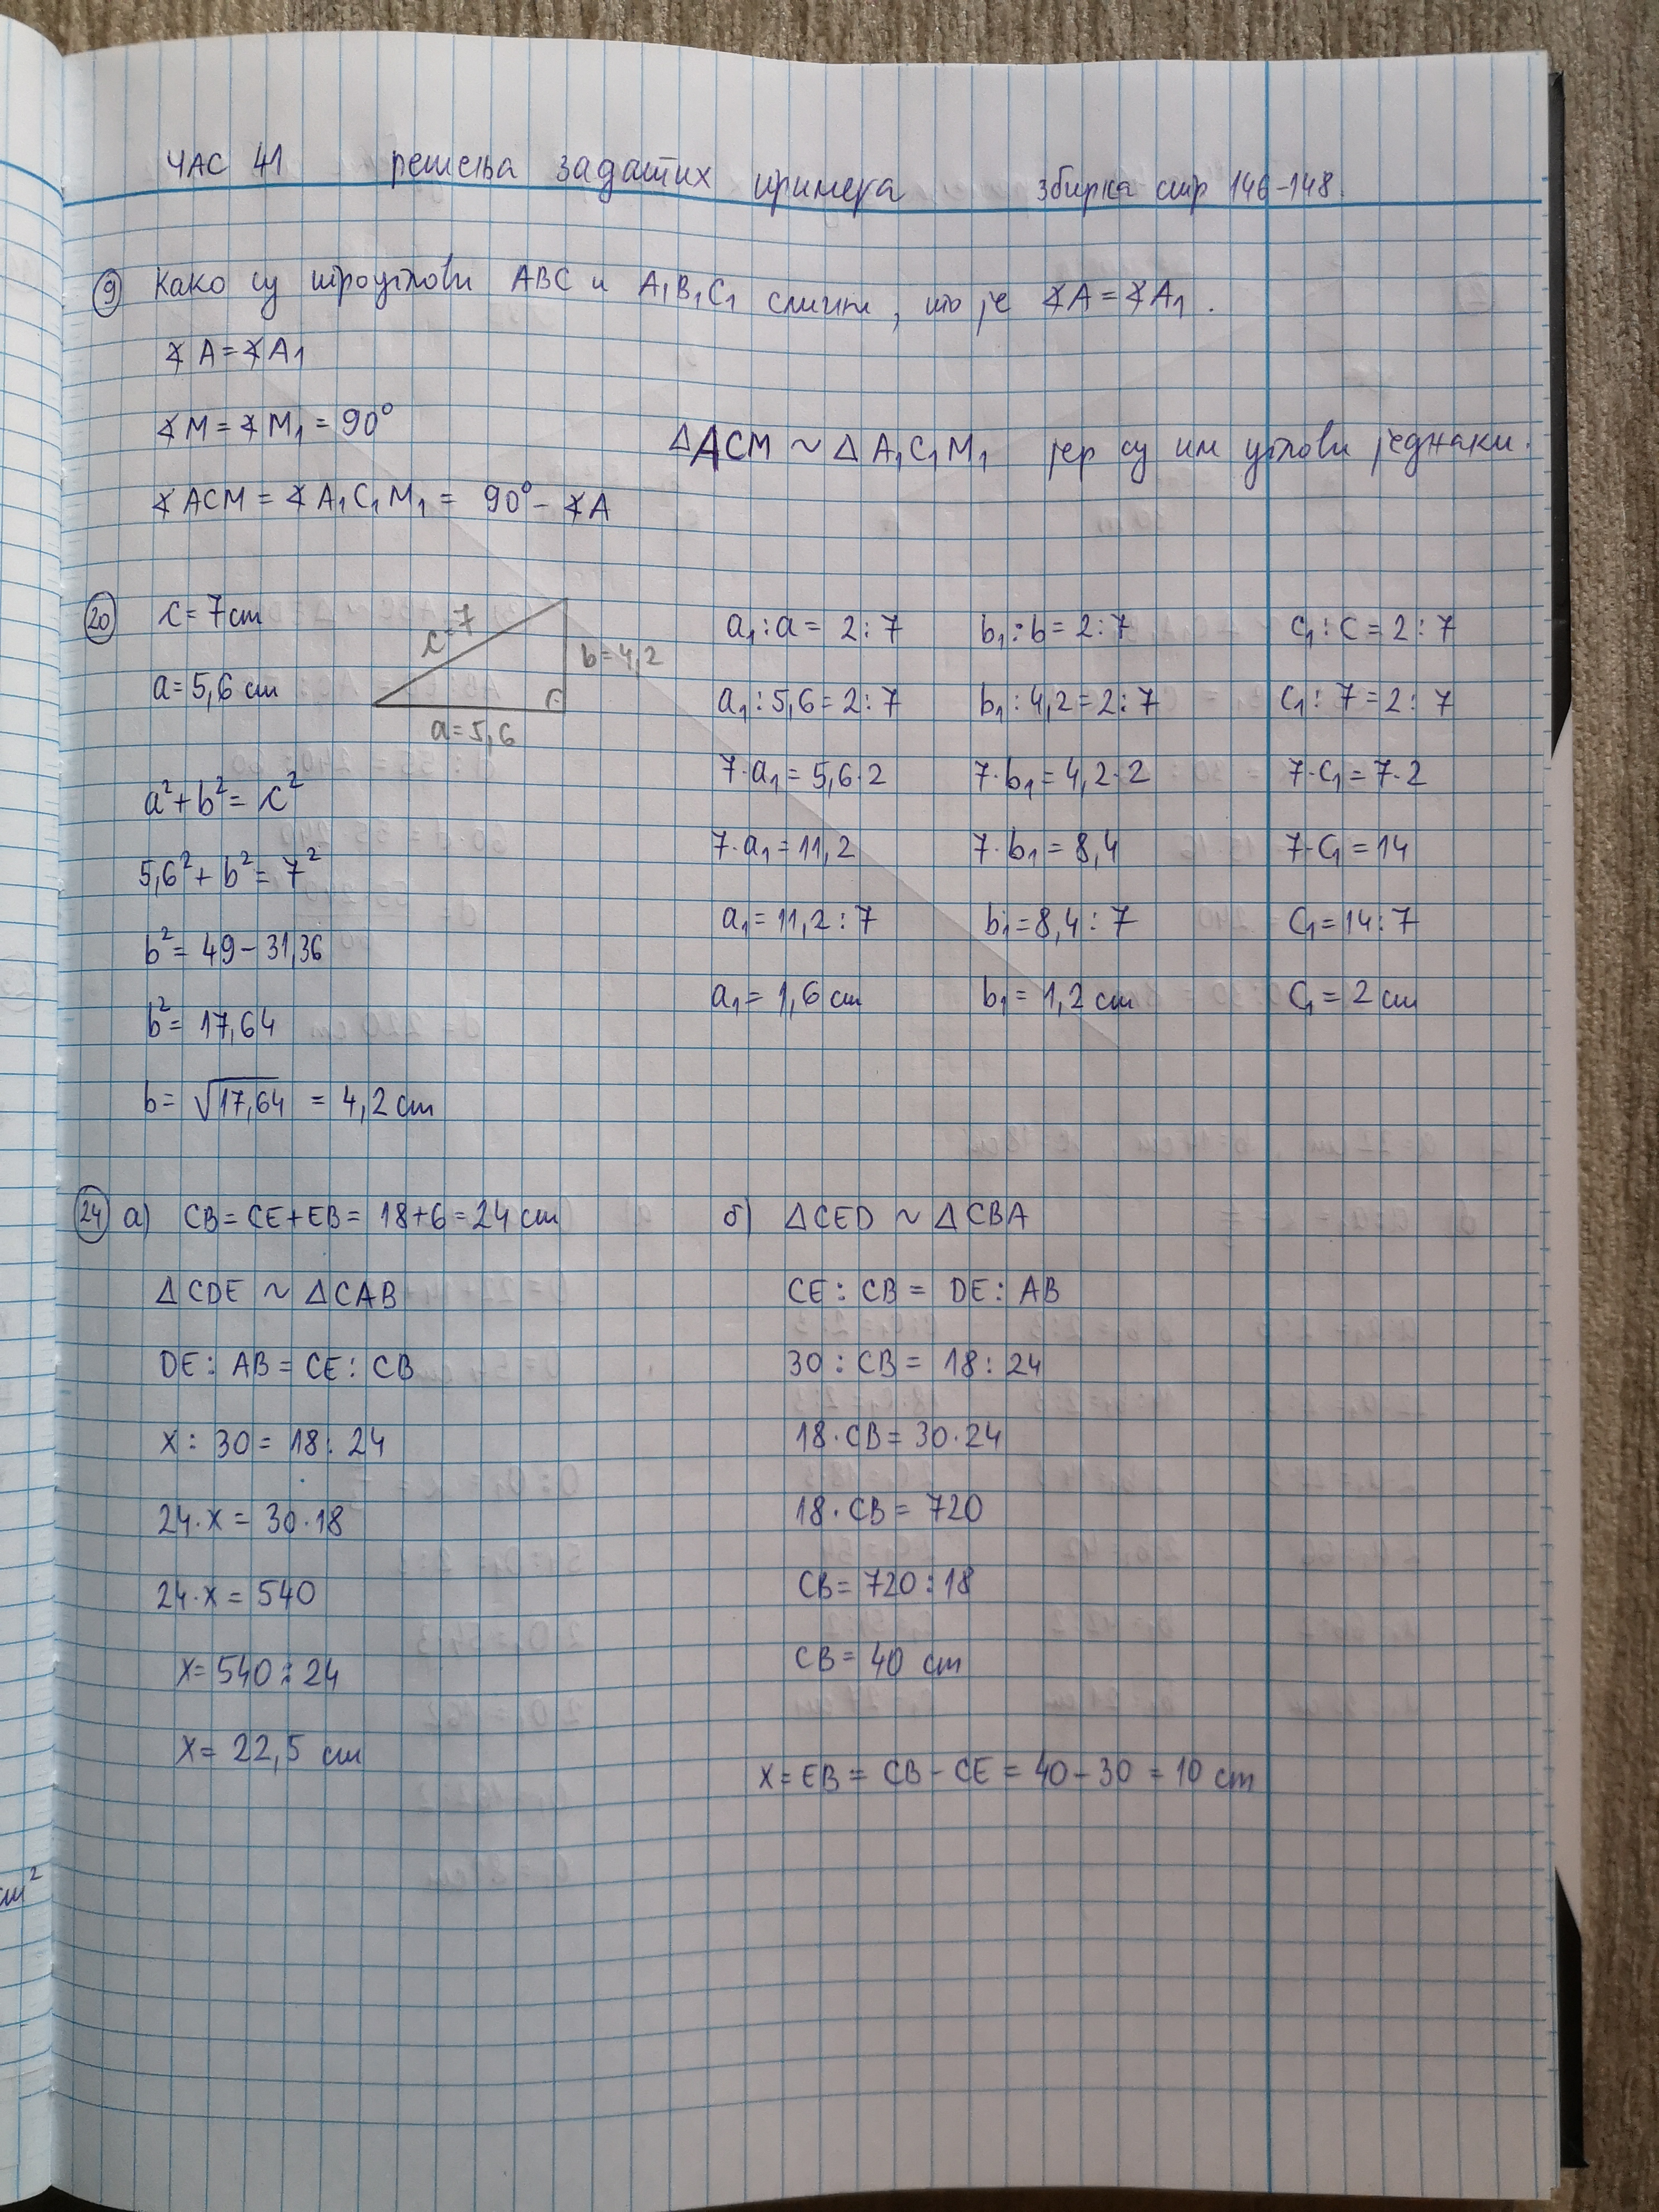 ЧАС 41 решења задатих примера збирка стр 146-148.
9 Како су троуглови ABC и A₁B₁C₁ слични, то је ∢A = ∢A₁.
∢A = ∢A₁
∢M = ∢M₁ = 90°
∢ACM = ∢A₁C₁M₁ = 90° - ∢A
ΔACM ~ ΔA₁C₁M₁ јер су им углови једнаки.
20 c = 7 cm
a = 5,6 cm
c = 7
b = 4,2
a = 5,6
a² + b² = c²
5,6² + b² = 7²
b² = 49 - 31,36
b² = 17,64
b = √17,64 = 4,2 cm
a₁ : a = 2 : 7
a₁ : 5,6 = 2 : 7
7·a₁ = 5,6·2
7·a₁ = 11,2
a₁ = 11,2 : 7
a₁ = 1,6 cm
b₁ : b = 2 : 7
b₁ : 4,2 = 2 : 7
7·b₁ = 4,2·2
7·b₁ = 8,4
b₁ = 8,4 : 7
b₁ = 1,2 cm
c₁ : c = 2 : 7
c₁ : 7 = 2 : 7
7·c₁ = 7·2
7·c₁ = 14
c₁ = 14 : 7
c₁ = 2 cm
24 а) CB = CE + EB = 18 + 6 = 24 cm
ΔCDE ~ ΔCAB
DE : AB = CE : CB
x : 30 = 18 : 24
24·x = 30·18
24·x = 540
x = 540 : 24
x = 22,5 cm
б) ΔCED ~ ΔCBA
CE : CB = DE : AB
30 : CB = 18 : 24
18·CB = 30·24
18·CB = 720
CB = 720 : 18
CB = 40 cm
x = EB = CB - CE = 40 - 30 = 10 cm
cm²